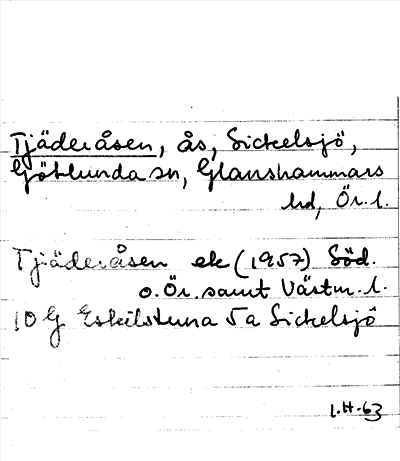 Tjäderåsen, ås, Sickelsjö,
Götlunda sn, Glanshammars
hd, Ör. l.
Tjäderåsen ek (1957) Söd.
o. Ör. samt Västm. l.
10 G Eskilstuna 5a Sickelsjö
1.H-63